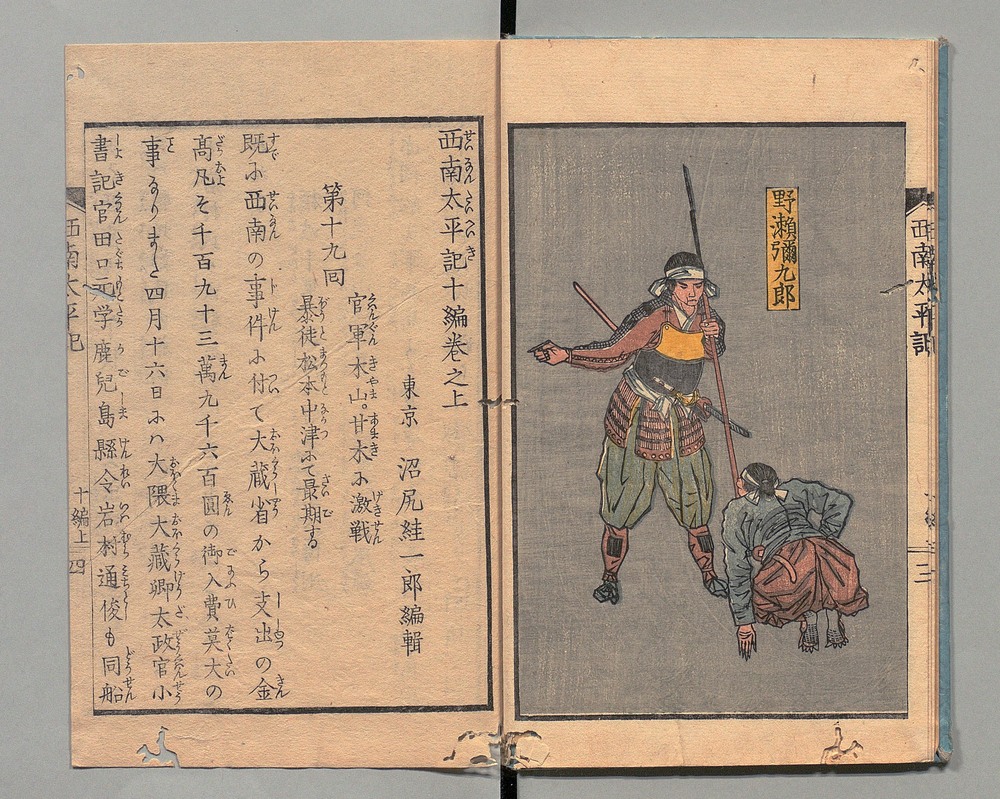 野瀬彌九郎
西南太平記十編巻之上
東京 沼尻絓一郎編輯
第十九回
官軍木山。甘木に激戦
暴徒松本中津にて最期する
既に西南の事件に付て大蔵省から支出の金
髙凡そ千百九十三萬九千六百圓の御入費莫大の
事なりました四月十六日にハ大隈大蔵卿太政官小
書記官田口元学鹿児島縣令岩村通俊も同船
西南太平記
十編上
四